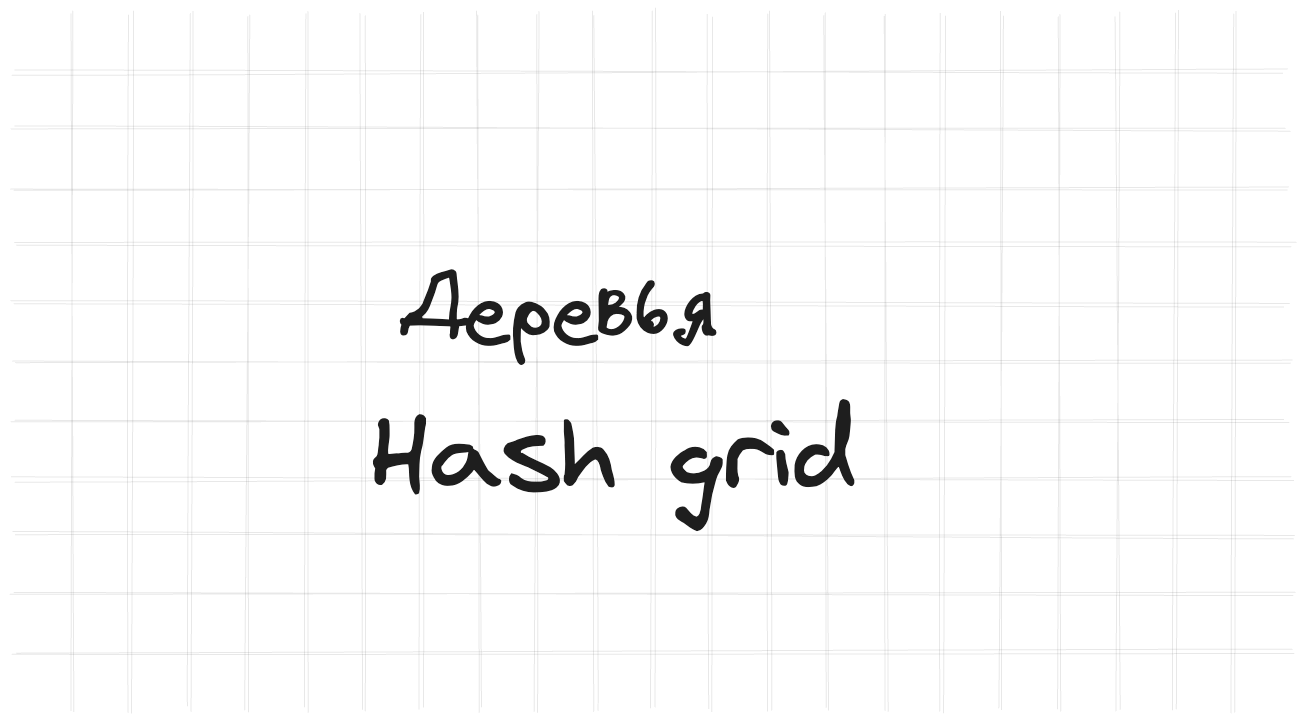 Деревья
Hash grid